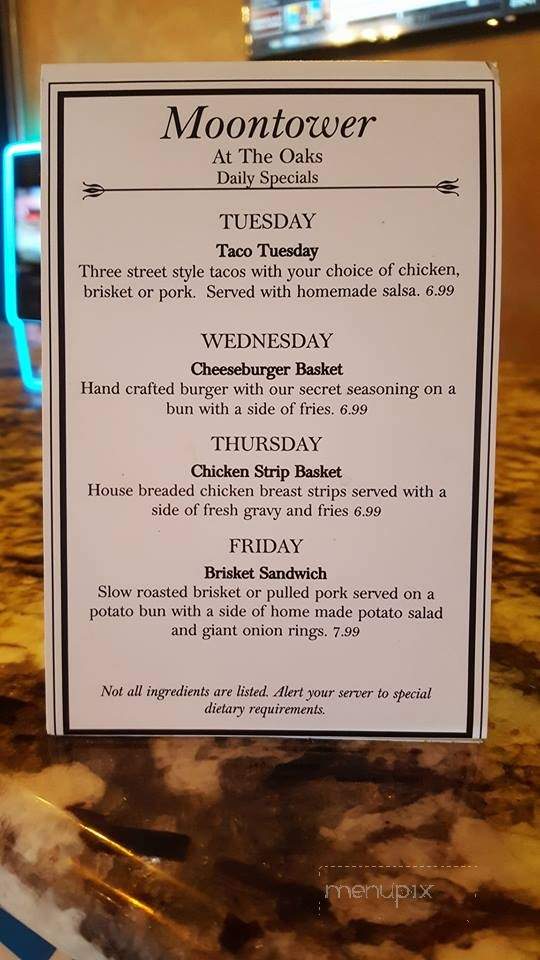 Moontower
At The Oaks
Daily Specials
TUESDAY
Taco Tuesday
Three street style tacos with your choice of chicken,
brisket or pork. Served with homemade salsa. 6.99
WEDNESDAY
Cheeseburger Basket
Hand crafted burger with our secret seasoning on a
bun with a side of fries. 6.99
THURSDAY
Chicken Strip Basket
House breaded chicken breast strips served with a
side of fresh gravy and fries 6.99
FRIDAY
Brisket Sandwich
Slow roasted brisket or pulled pork served on a
potato bun with a side of home made potato salad
and giant onion rings. 7.99
Not all ingredients are listed. Alert your server to special
dietary requirements.
menupix